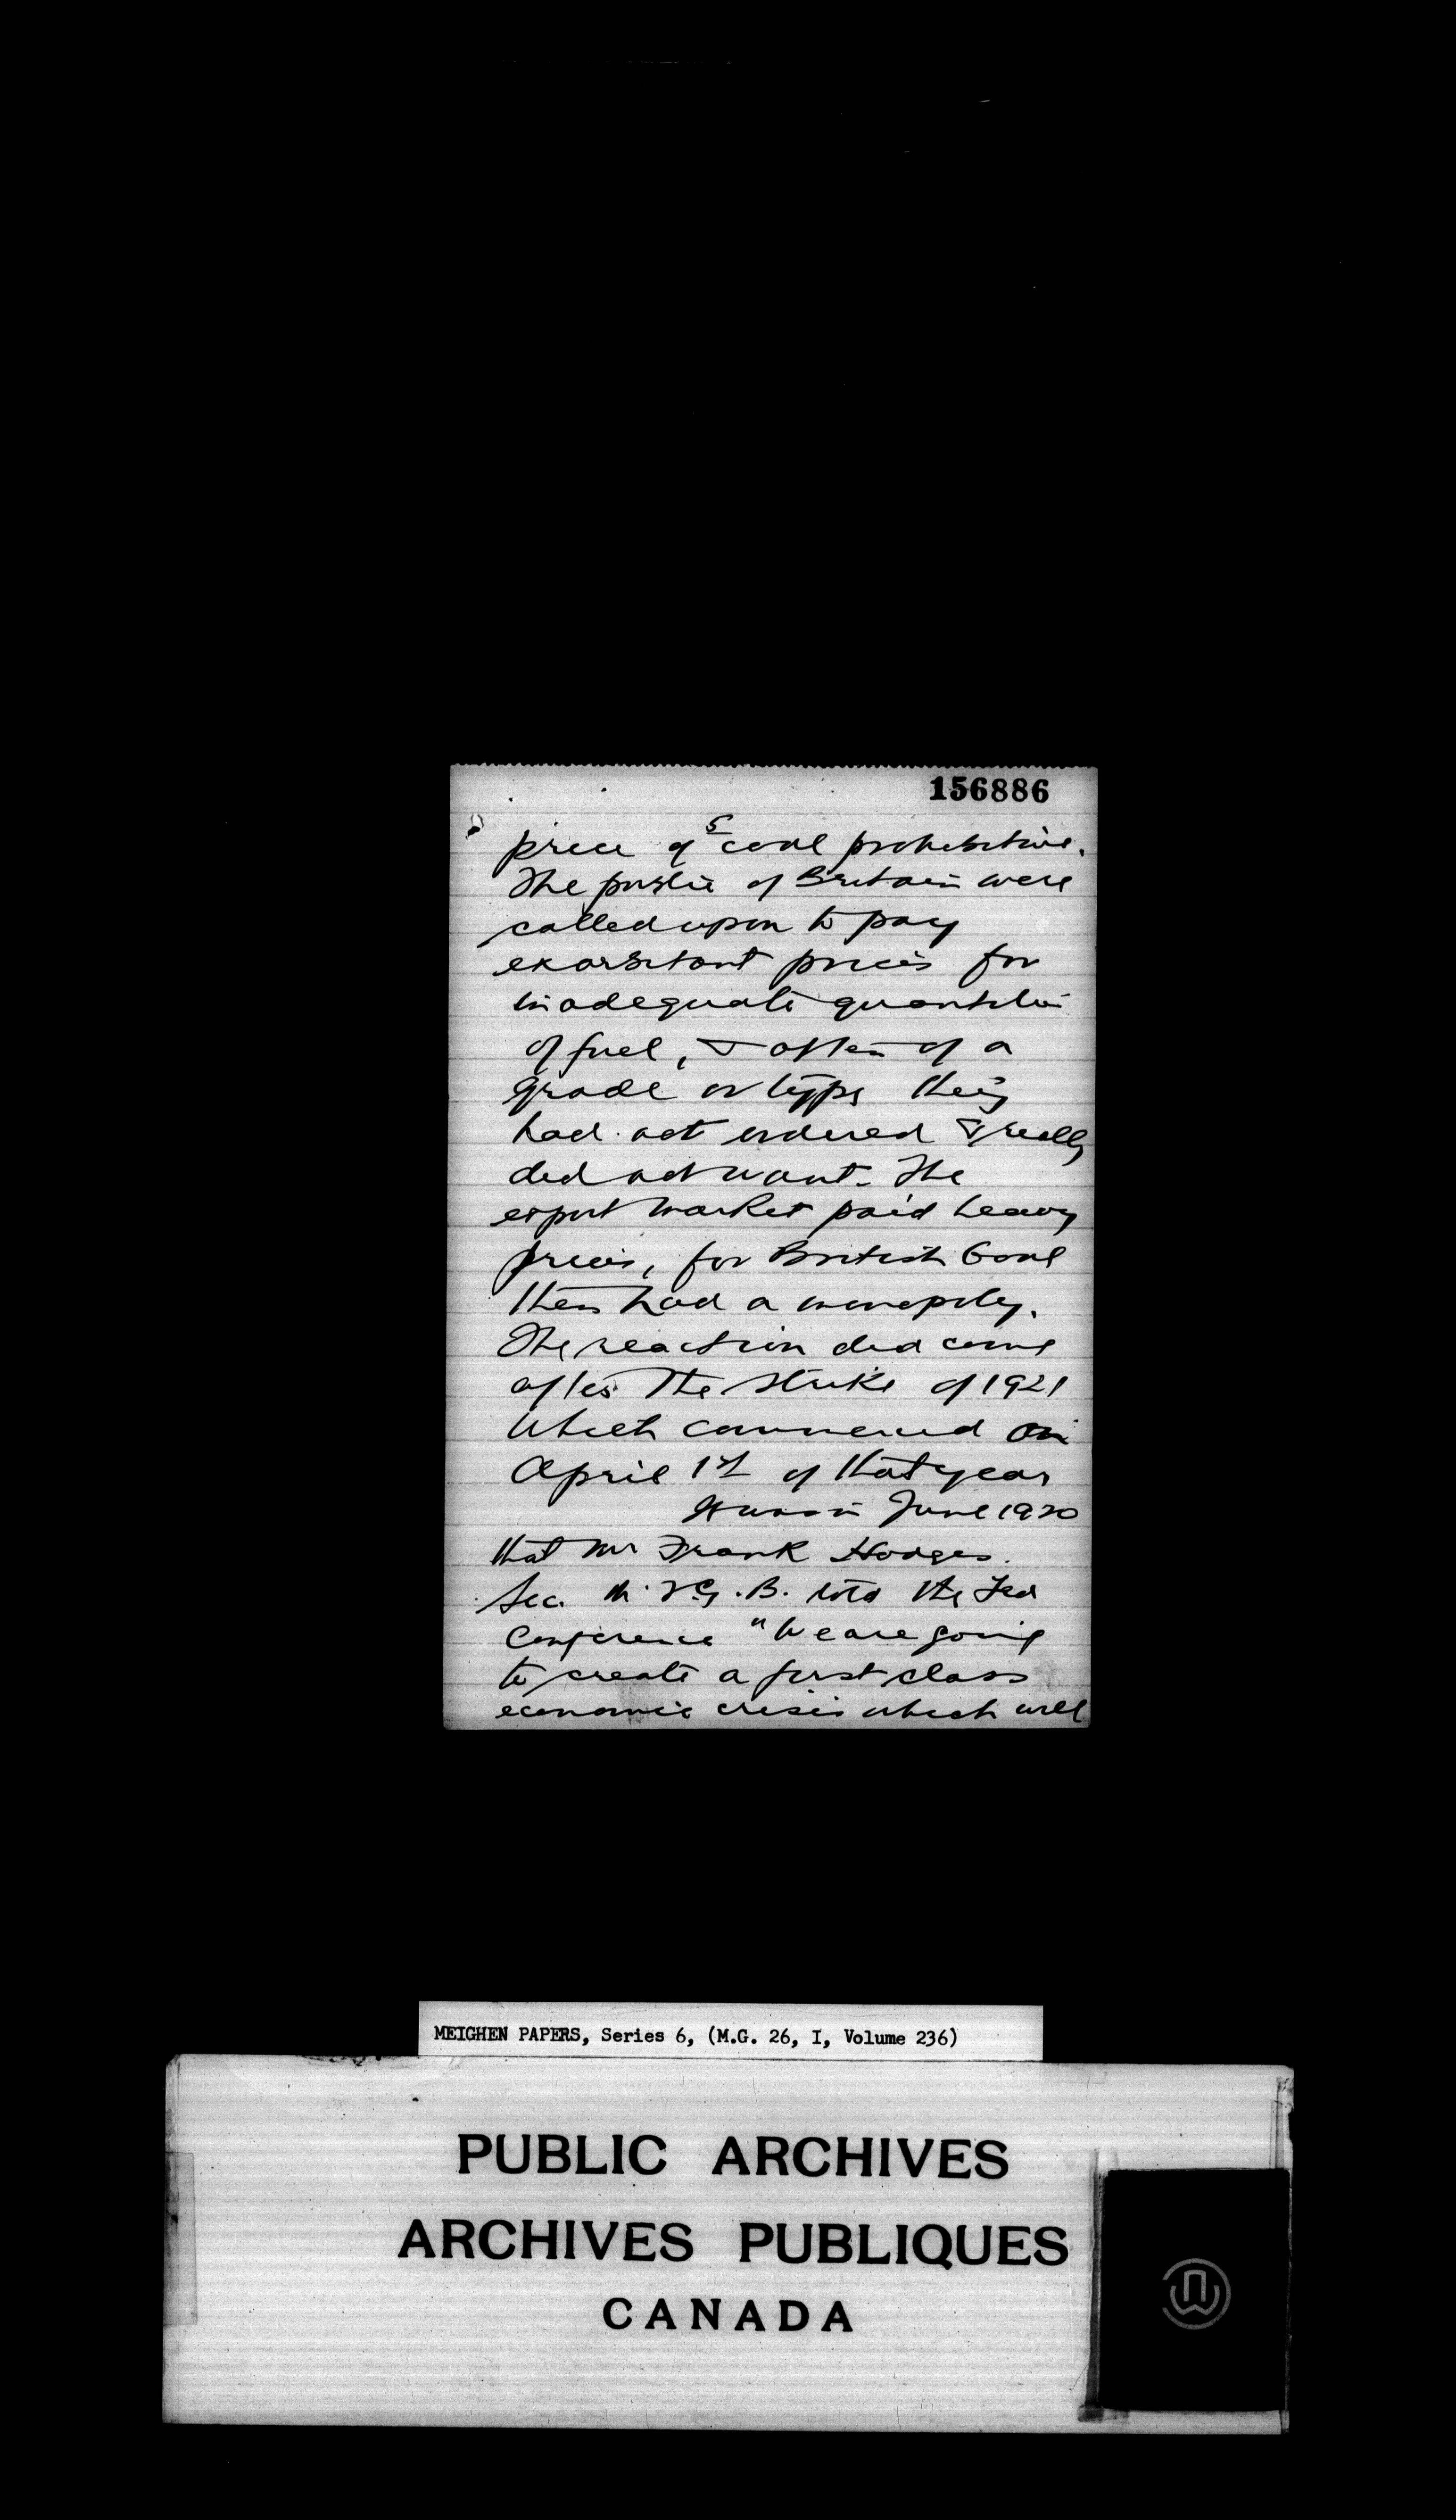 156886
5
price of coal prohibitive.
The public of Britain were
called upon to pay
exorbitant prices for
inadequate quantities
of fuel, & often of a
grade or type they
had not ordered & really
did not want. The
export market paid heavy
prices, for British Coal
then had a monopoly.
The reaction did come
after the strike of 1921
which commenced on
April 1st of that year
It was in June 1920
that Mr Frank Hodges.
Sec. M.F.G.B. told the Fed
Conference "We are going
to create a first class
economic crisis which will
MEIGHEN PAPERS, Series 6, (M.G. 26, I, Volume 236)
PUBLIC ARCHIVES
ARCHIVES PUBLIQUES
CANADA